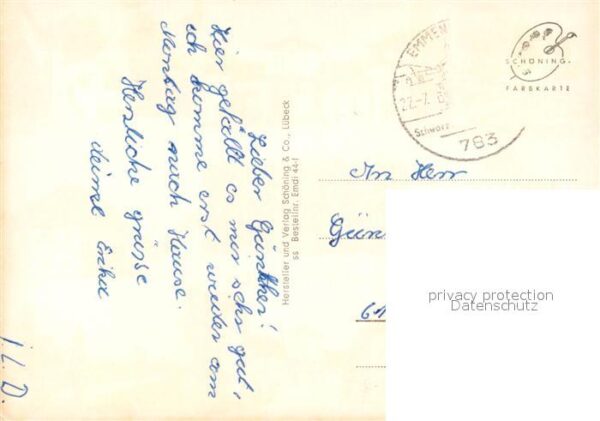 Lieber Günther!
Hier gefällt es mir sehr gut,
ich komme erst wieder am
Montag nach Hause.
Herzliche grüsse
deine Erika
i. L. D.
Hersteller und Verlag Schöning & Co., Lübeck
ss Bestellnr. Emdi 44-1
EMMEN
22.-7.
Schwarz
783
SCHÖNING-
FARBKARTE
An Herr
Gün
61
privacy protection
Datenschutz